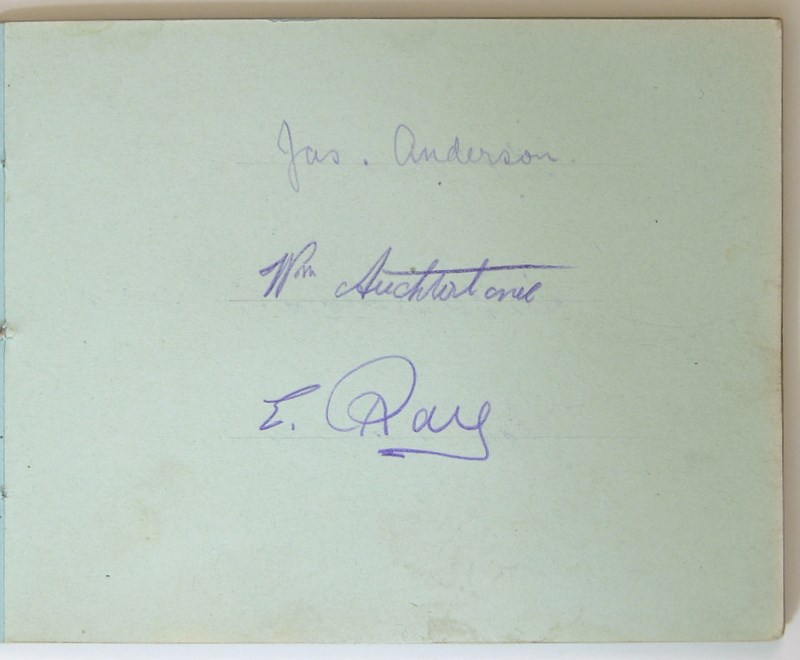 Jas. Anderson.
Wm Auchterlonie
E. Ray